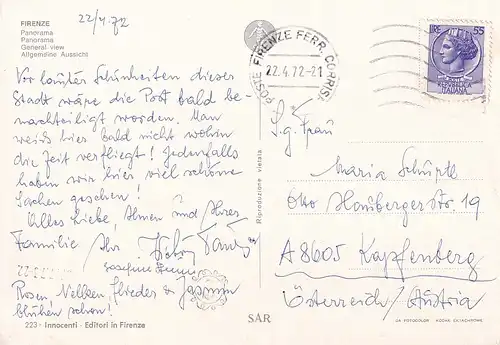 FIRENZE
Panorama
Panorama
General view
Allgemeine Aussicht
22/4.72
Vor lauter Schönheiten dieser
Stadt wäre die Post bald be-
nachteiligt worden. Man
weiß hier bald nicht wohin
die Zeit verfliegt! Jedenfalls
haben wir hier viel schöne
Sachen gesehen!
Alles Liebe, Ihnen und Ihrer
Familie Ihr
Rosen, Nelken, Flieder & Jasmin
blühen schon!
223 - Innocenti - Editori in Firenze
Riproduzione vietata
SAR
POSTE FIRENZE FERR. CORRISP.
22.4.72-21
LIRE 55
REPUBBLICA
ITALIANA
S.g. Frau
Maria
Otto Hauberger Str. 19
A 8605 Kapfenberg
Österreich/Austria
DA FOTOCOLOR KODAK EKTACHROME